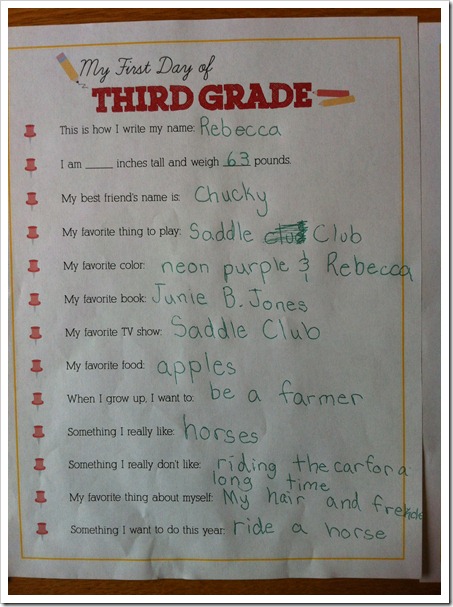 My First Day of
THIRD GRADE
This is how I write my name: Rebecca
I am ____ inches tall and weigh 63 pounds.
My best friend's name is: Chucky
My favorite thing to play: Saddle Club
My favorite color: neon purple & Rebecca
My favorite book: Junie B. Jones
My favorite TV show: Saddle Club
My favorite food: apples
When I grow up, I want to: be a farmer
Something I really like: horses
Something I really don't like: riding the car for a
long time
My favorite thing about myself: My hair and
Something I want to do this year: ride a horse